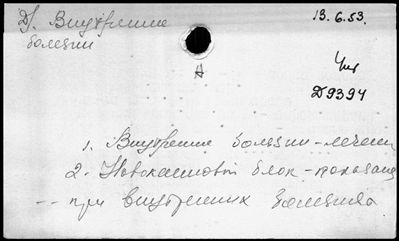 Д). Внутренние 13.6.53.
болезни
Д9394
1. Внутренние болезни - лечен.
2. Новокаиновой блок - показания
-- при внутренних болезнях